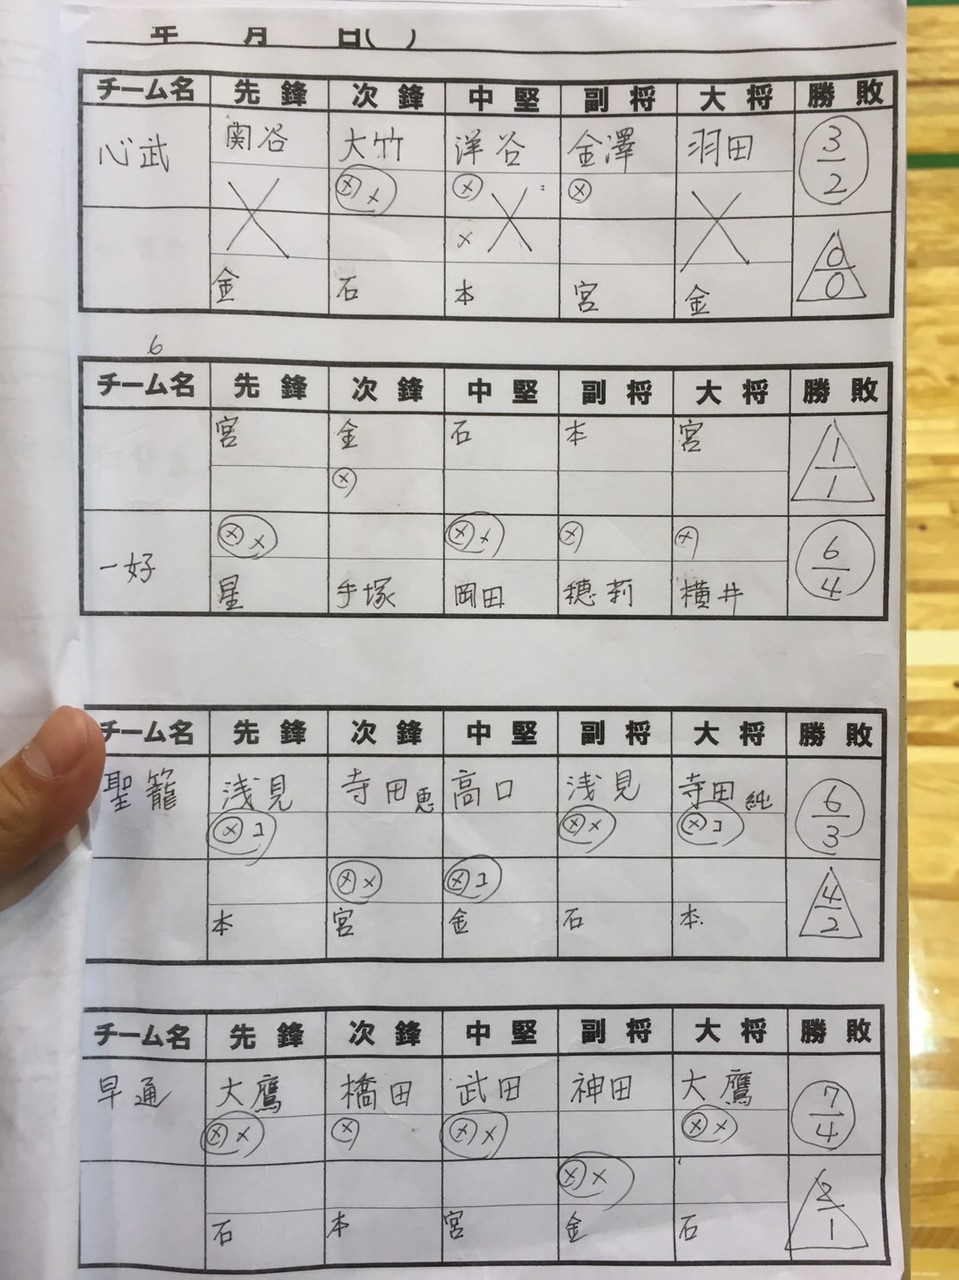 年 月 日( )
チーム名 先鋒 次鋒 中堅 副将 大将 勝敗
心武 関谷 大竹 洋谷 金澤 羽田 3/2
ⓧ x ⓧ ⓧ
x 0/0
金 石 本 宮 金
6
チーム名 先鋒 次鋒 中堅 副将 大将 勝敗
宮 金 石 本 宮 1/1
ⓧ
一好 ⓧ x ⓧ x ⓧ ⓧ 6/4
星 手塚 岡田 穂莉 横井
チーム名 先鋒 次鋒 中堅 副将 大将 勝敗
聖籠 浅見 寺田恵 高口 浅見 寺田純 6/3
ⓧ コ ⓧ x ⓧ コ
ⓧ x ⓧ コ 4/2
本 宮 金 石 本
チーム名 先鋒 次鋒 中堅 副将 大将 勝敗
早通 大鷹 橋田 武田 神田 大鷹 7/4
ⓧ x ⓧ ⓧ x ⓧ x
ⓧ x 2/1
石 本 宮 金 石